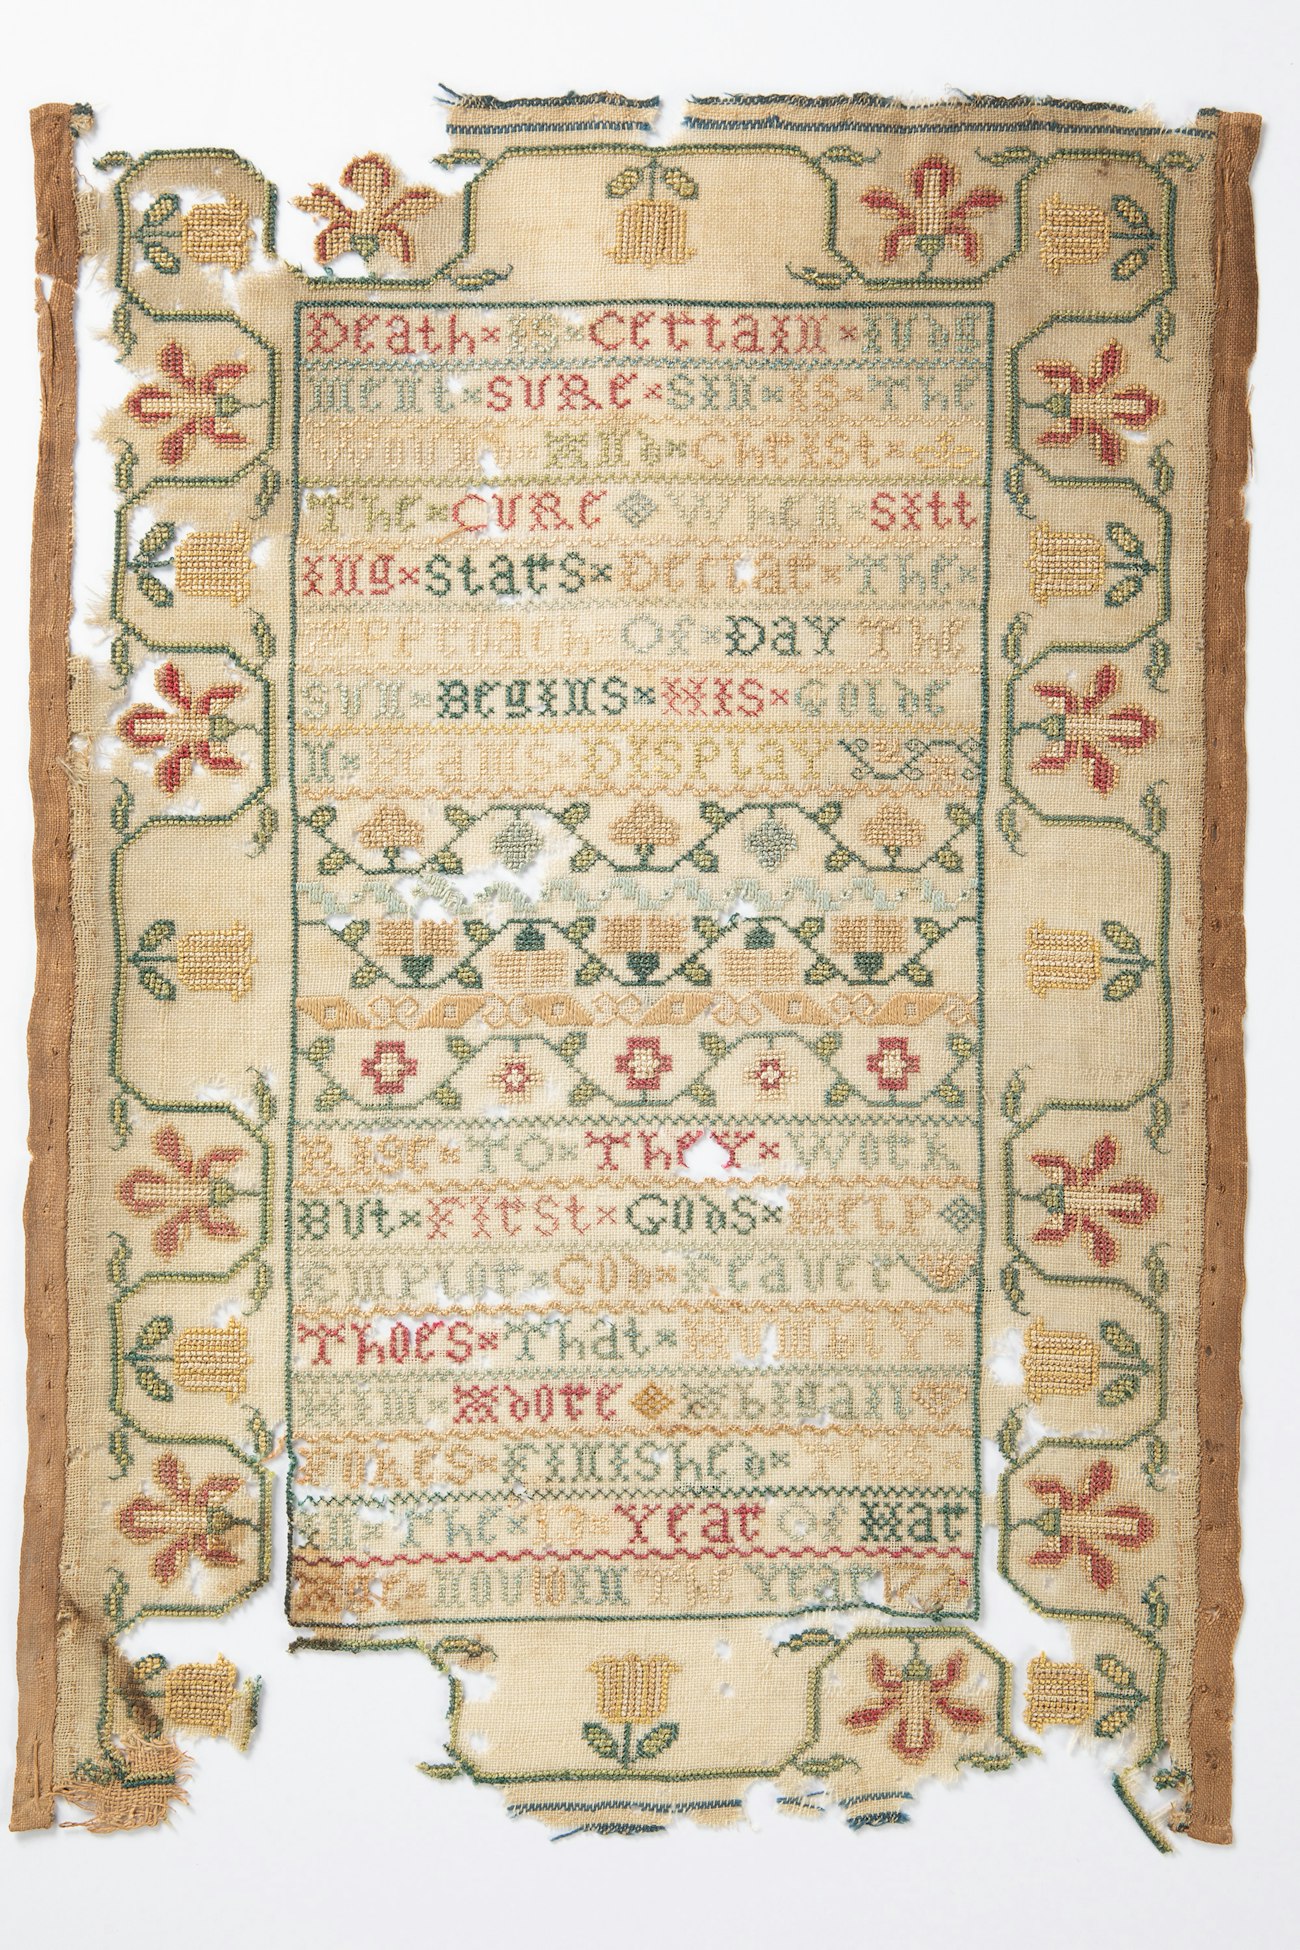 Death is Certain Iudg
ment sure sin is The
Wound And Christ is
The CURE When sitt
ing stars Declar The
Approach Of Day The
sun Begins His Golde
n DisPLAY
Rise TO They Work
But First Gods HelP
EmPlore God Feaver
Thoes That HumblY
Him Adore Abigail
Fokes Finished This
in The 13 Year Of Har
Age nov IN The Year